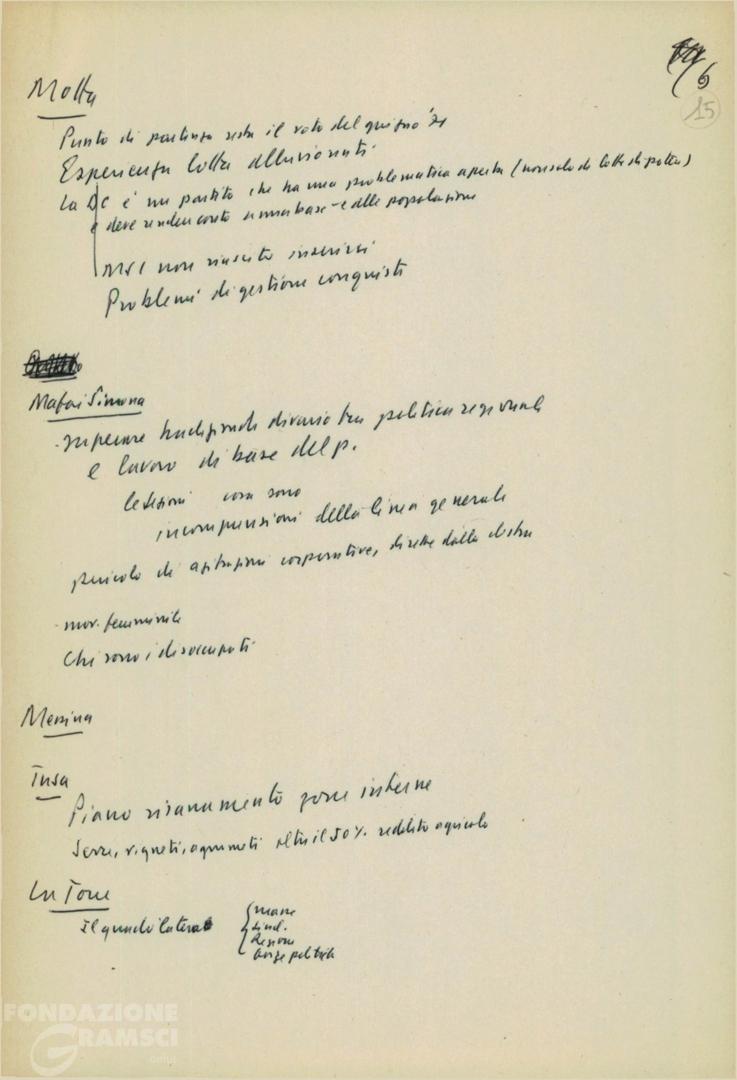 6
15
Motta
Punto di partenza resta il voto del giugno '71
Esperienza lotta alluvionati
La DC è un partito che ha una problematica aperta (non solo di lotta di potere)
e deve render conto a una base e alle popolazione
MSI non riuscito inserirsi
Problemi di gestione conquiste
Mafai Simona
- superare divario tra politica regionale
e lavoro di base del p.
le sezioni cosa sono
incomprensioni della linea generale
pericolo di agitazioni corporative, dirette dalla destra
- mov. femminile
Chi sono i disoccupati
Messina
Tusa
Piano risanamento zone interne
Serre, vigneti, agrumeti oltre il 50% reddito agricolo
La Torre
Il quadrilatero
masse
sind.
Regione
forze politiche
FONDAZIONE
GRAMSCI